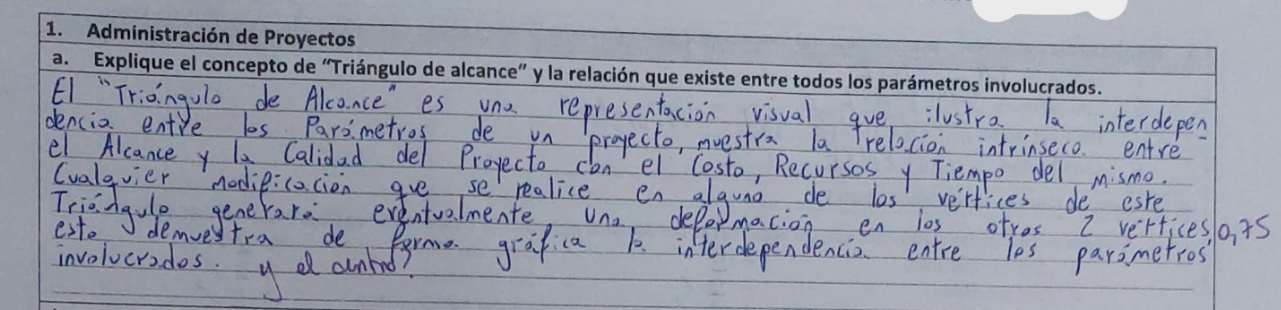 1. Administración de Proyectos
a. Explique el concepto de "Triángulo de alcance" y la relación que existe entre todos los parámetros involucrados.
El "Triángulo de Alcance" es una representación visual que ilustra la interdepen
dencia entre los Parámetros de un proyecto, muestra la relación intrínseca entre
el Alcance y la Calidad del Proyecto con el Costo, Recursos y Tiempo del mismo.
Cualquier modificación que se realice en alguno de los vértices de este
Triángulo generará eventualmente una deformación en los otros 2 vértices, 0,75
esto demuestra de forma gráfica la interdependencia entre los parámetros
involucrados. y el centro?